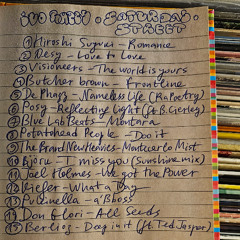 SATURDAY
STREET
1 Hiroshi Suzui - Romance
2 Desy - Love to Love
3 Visioneers - The world is yours
4 Butcher brown - Frontline
5 De Phazz - Nameless Life (Ra Poetry)
6 Posy - Reflecting Light (ft B. Gierleg)
7 Blue Lab Beats - Montara
8 Potatohead People - Do it
9 The Brand New Heavies - Montecarlo Mist
10 Björk - I miss you (Sunshine mix)
11 Jael Holmes - I've got the Power
12 Kiefer - What a Day
13 Pulcinella - a'Bboss
14 Don Glori - All Seeds
15 Berlioz - Deep in it (ft. Ted Jasper)